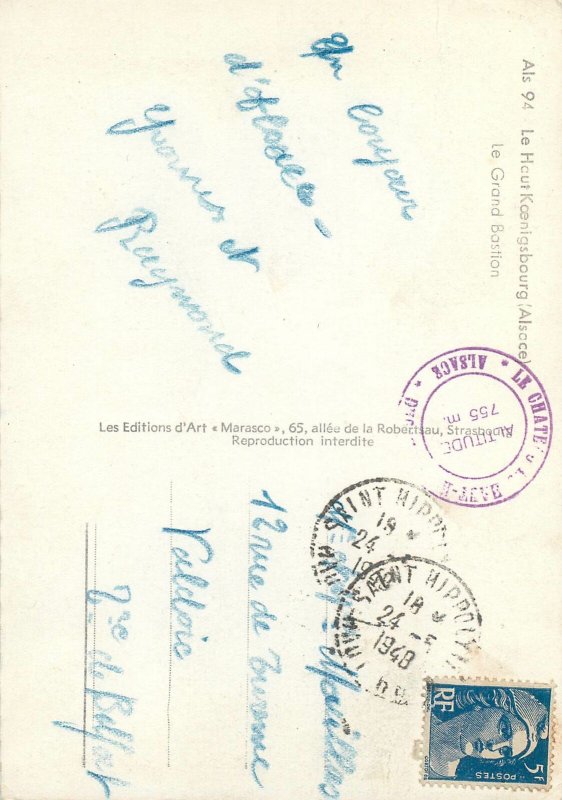 Als 94 Le Haut Kœnigsbourg (Alsace)
Le Grand Bastion
Un bonjour
d'Alsace -
Yvonne et
Raymond
Les Editions d'Art « Marasco », 65, allée de la Robertsau, Strasbourg
Reproduction interdite
LE CHATE
ALSACE
ALTITUDE
755 m.
SAINT HIPPOLYTE
18
24
SAINT HIPPOLYTE
18
24 -5
1948
12 rue de Turenne
Valdoie
Tre de Belfort
RF
POSTES
5F